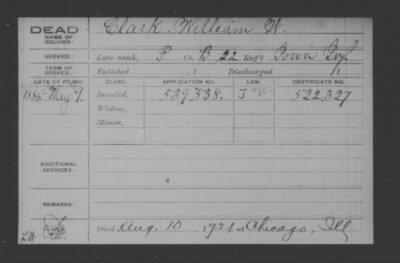 DEAD Clark, William W.
NAME OF SOLDIER:
SERVICE: Late rank, P Co. B, 22 Reg't Iowa Inf
TERM OF SERVICE: Enlisted , 1 Discharged , 1
DATE OF FILING. CLASS. APPLICATION NO. LAW. CERTIFICATE NO.
1885 May 9. Invalid, 539.338. 522.327
Widow,
Minor,
ADDITIONAL SERVICES:
REMARKS:
Died Aug. 10, 1921, at Chicago, Ill